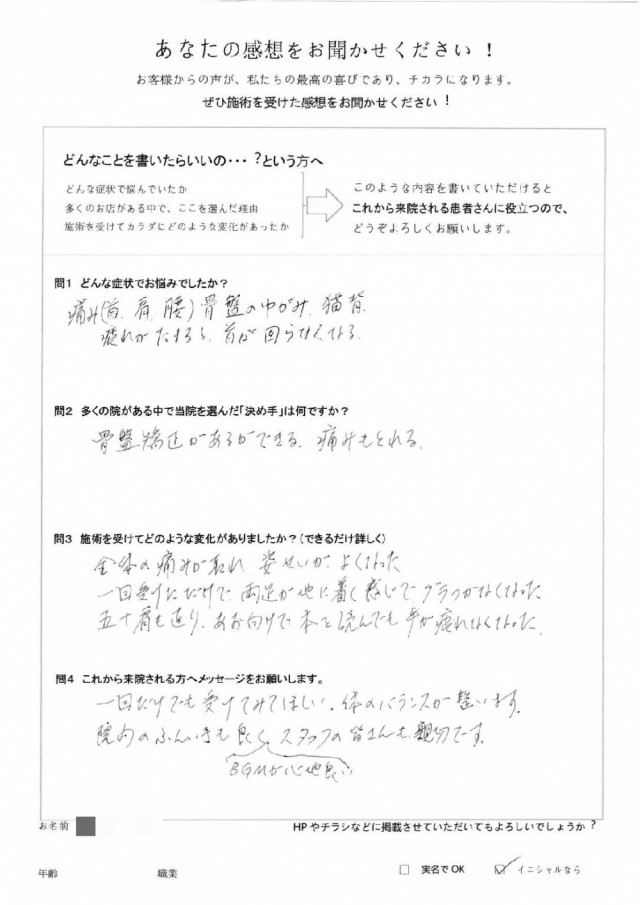 あなたの感想をお聞かせください！
お客様からの声が、私たちの最高の喜びであり、チカラになります。
ぜひ施術を受けた感想をお聞かせください！
どんなことを書いたらいいの・・・？という方へ
どんな症状で悩んでいたか
多くのお店がある中で、ここを選んだ理由
施術を受けてカラダにどのような変化があったか
このような内容を書いていただけると
これから来院される患者さんに役立つので、
どうぞよろしくお願いします。
問1 どんな症状でお悩みでしたか？
痛み(首、肩、腰)骨盤のゆがみ、猫背、
疲れがたまると、首が回らなくなる。
問2 多くの院がある中で当院を選んだ「決め手」は何ですか？
骨盤矯正が できる、痛みもとれる。
問3 施術を受けてどのような変化がありましたか？（できるだけ詳しく）
全体の痛みが取れ 姿せいが よくなった
一回受けただけで、両足が地に着く感じでグラつかなくなった
五十肩も直り、あお向けで本を読んでも手が疲れなくなった。
問4 これから来院される方へメッセージをお願いします。
一回だけでも受けてみてほしい。体のバランスが整います。
院内のふんいきも良く スタッフの皆さんも親切です。
BGMが心地良い
お名前
HPやチラシなどに掲載させていただいてもよろしいでしょうか？
年齢 職業 実名でOK イニシャルなら